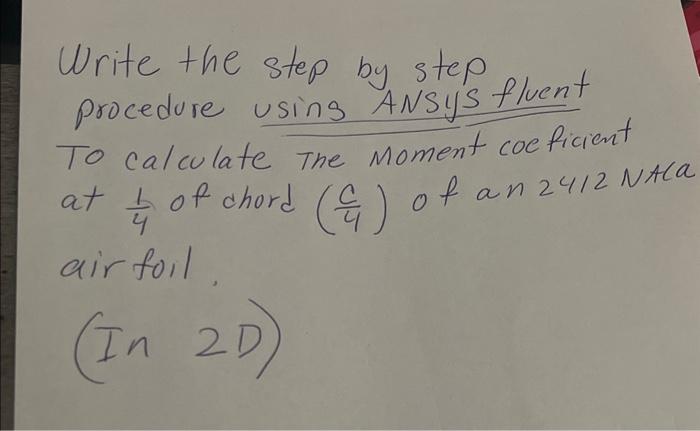 Write the step by step
procedure using ANSYS fluent
To calculate The Moment coeficient
at 1/4 of chord (C/4) of an 2412 NACa
air foil.
(In 2D)